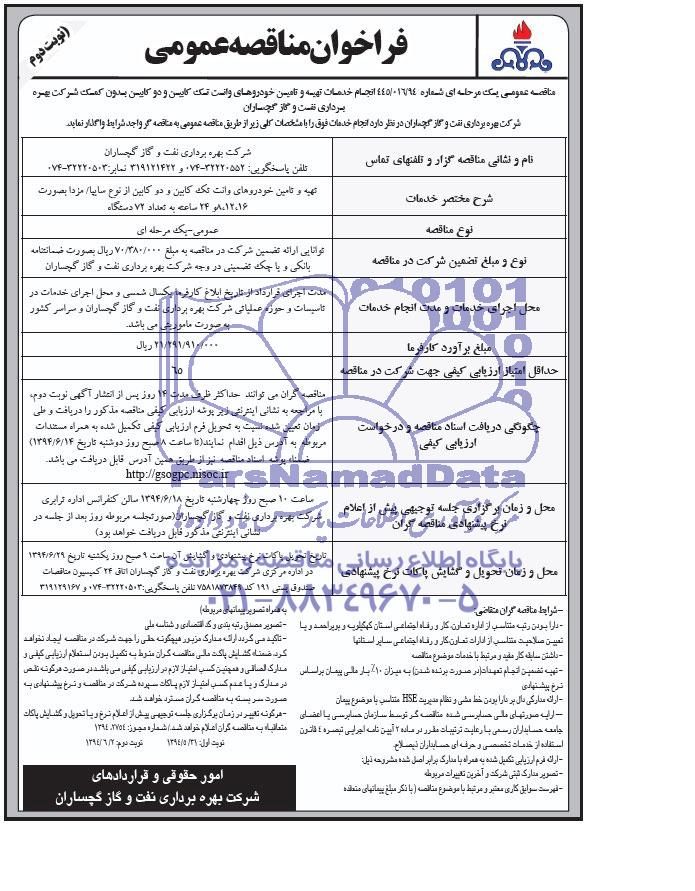 (نوبت دوم)
فراخوان مناقصه عمومی
مناقصه عمومی یک مرحله ای شماره ۴۴۵/۰۱۶/۹۴ انجام خدمات تهیه و تامین خودروهای وانت تک کابین و دو کابین بدون کمک شرکت بهره
برداری نفت و گاز گچساران
شرکت بهره برداری نفت و گاز گچساران در نظر دارد انجام خدمات فوق را با مشخصات کلی زیر از طریق مناقصه عمومی به مناقصه گر واجد شرایط واگذار نماید.
نام و نشانی مناقصه گزار و تلفنهای تماس
شرکت بهره برداری نفت و گاز گچساران
تلفن پاسخگویی: ۳۲۲۲۰۵۵۲-۰۷۴ و ۳۱۹۱۲۱۴۲۲ نمابر: ۳۲۲۲۰۵۰۳-۰۷۴
شرح مختصر خدمات
تهیه و تامین خودروهای وانت تک کابین و دو کابین از نوع سایپا/ مزدا بصورت
۸،۱۲،۱۶و ۲۴ ساعته به تعداد ۷۲ دستگاه
نوع مناقصه
عمومی-یک مرحله ای
نوع و مبلغ تضمین شرکت در مناقصه
توانایی ارائه تضمین شرکت در مناقصه به مبلغ ۷۰/۳۸۰/۰۰۰ ریال بصورت ضمانتنامه
بانکی و یا چک تضمینی در وجه شرکت بهره برداری نفت و گاز گچساران
محل اجرای خدمات و مدت انجام خدمات
مدت اجرای قرارداد از تاریخ ابلاغ کارفرما یکسال شمسی و محل اجرای خدمات در
تاسیسات و حوزه عملیاتی شرکت بهره برداری نفت و گاز گچساران و سراسر کشور
به صورت ماموریتی می باشد.
مبلغ برآورد کارفرما
۲۱/۲۹۱/۹۱۰/۰۰۰ ریال
حداقل امتیاز ارزیابی کیفی جهت شرکت در مناقصه
۶۵
چگونگی دریافت اسناد مناقصه و درخواست
ارزیابی کیفی
مناقصه گران می توانند حداکثر ظرف مدت ۱۴ روز پس از انتشار آگهی نوبت دوم،
با مراجعه به نشانی اینترنتی زیر پوشه ارزیابی کیفی مناقصه مذکور را دریافت و طی
زمان تعیین شده نسبت به تحویل فرم ارزیابی کیفی تکمیل شده به همراه مستندات
مربوطه به آدرس ذیل اقدام نمایند(تا ساعت ۸ صبح روز دوشنبه تاریخ ۱۳۹۴/۶/۱۴)
ضمنا پوشه اسناد مناقصه نیز از طریق همین آدرس قابل دریافت می باشد.
http://gsogpc.nisoc.ir
محل و زمان برگزاری جلسه توجیهی پیش از اعلام
نرخ پیشنهادی مناقصه گران
ساعت ۱۰ صبح روز چهارشنبه تاریخ ۱۳۹۴/۶/۱۸ سالن کنفرانس اداره ترابری
شرکت بهره برداری نفت و گاز گچساران(صورتجلسه مربوطه روز بعد از جلسه در
نشانی اینترنتی مذکور قابل دریافت خواهد بود)
محل و زمان تحویل و گشایش پاکات نرخ پیشنهادی
تاریخ تحویل پاکات نرخ پیشنهادی و گشایش آن ساعت ۹ صبح روز یکشنبه تاریخ ۱۳۹۴/۶/۲۹
در اداره مرکزی شرکت بهره برداری نفت و گاز گچساران اتاق ۲۴ کمیسیون مناقصات
صندوق پستی ۱۹۱ کد ۷۵۸۱۸۷۳۸۴۹ تلفن پاسخگویی: ۳۲۲۲۰۵۰۳-۰۷۴ و ۳۱۹۱۲۹۱۶۷
ParsNamadData
پایگاه اطلاع رسانی مناقصه و مزایده
۰۲۱-۸۸۳۴۹۶۷۰-۵
-شرایط مناقصه گران متقاضی:
- دارا بودن رتبه متناسب از اداره تعاون، کار و رفاه اجتماعی استان کهگیلویه و بویراحمد و یا
تعیین صلاحیت متناسب از ادارات تعاون کار و رفاه اجتماعی سایر استانها
-داشتن سابقه کار مفید و مرتبط با خدمات موضوع مناقصه
-تهیه تضمین انجام تعهدات(در صورت برنده شدن) به میزان ۱۰٪ بار مالی پیمان براساس
نرخ پیشنهادی
-ارائه مدارکی دال بر دارا بودن خط مشی و نظام مدیریت HSE متناسب با موضوع پیمان
- ارایه صورتهای مالی حسابرسی شده مناقصه گر توسط سازمان حسابرسی یا اعضای
جامعه حسابداران رسمی با رعایت ترتیبات مقرر در ماده ۲ آیین نامه اجرایی تبصره ۴ قانون
استفاده از خدمات تخصصی و حرفه ای حسابداران ذیصلاح.
-ارائه فرم ارزیابی تکمیل شده به همراه با مدارک برابر اصل شده مشروحه ذیل:
-تصویر مدارک ثبتی شرکت و آخرین تغییرات مربوطه
-فهرست سوابق کاری معتبر و مرتبط با موضوع مناقصه ( با ذکر مبلغ پیمانهای منعقده
به همراه تصویر پیمانهای مربوطه)
-تصویر مصدق رتبه بندی و کد اقتصادی و شناسه ملی
-تاکید می گردد ارائه مدارک مزبور هیچگونه حقی را جهت شرکت در مناقصه ایجاد نخواهد
کرد، ضمنا گشایش پاکت مالی مناقصه گران منوط به تکمیل بودن استعلام ارزیابی کیفی و
مدارک الصاقی و همچنین کسب امتیاز لازم در ارزیابی کیفی می باشد در صورت هرگونه نقص
در مدارک و یا عدم کسب امتیاز لازم پاکات سپرده شرکت در مناقصه و نرخ پیشنهادی به
صورت سر بسته به مناقصه گران مسترد خواهد شد.
-هرگونه تغییر در زمان برگزاری جلسه توجیهی پیش از اعلام نرخ و یا تحویل و گشایش پاکات
متعاقبا به مناقصه گران اعلام خواهد شد./ شماره مجوز: ۱۳۹۴،۲۷۵۴
نوبت اول: ۱۳۹۴/۵/۳۱ نوبت دوم: ۱۳۹۴/۶/۲
امور حقوقی و قراردادهای
شرکت بهره برداری نفت و گاز گچساران